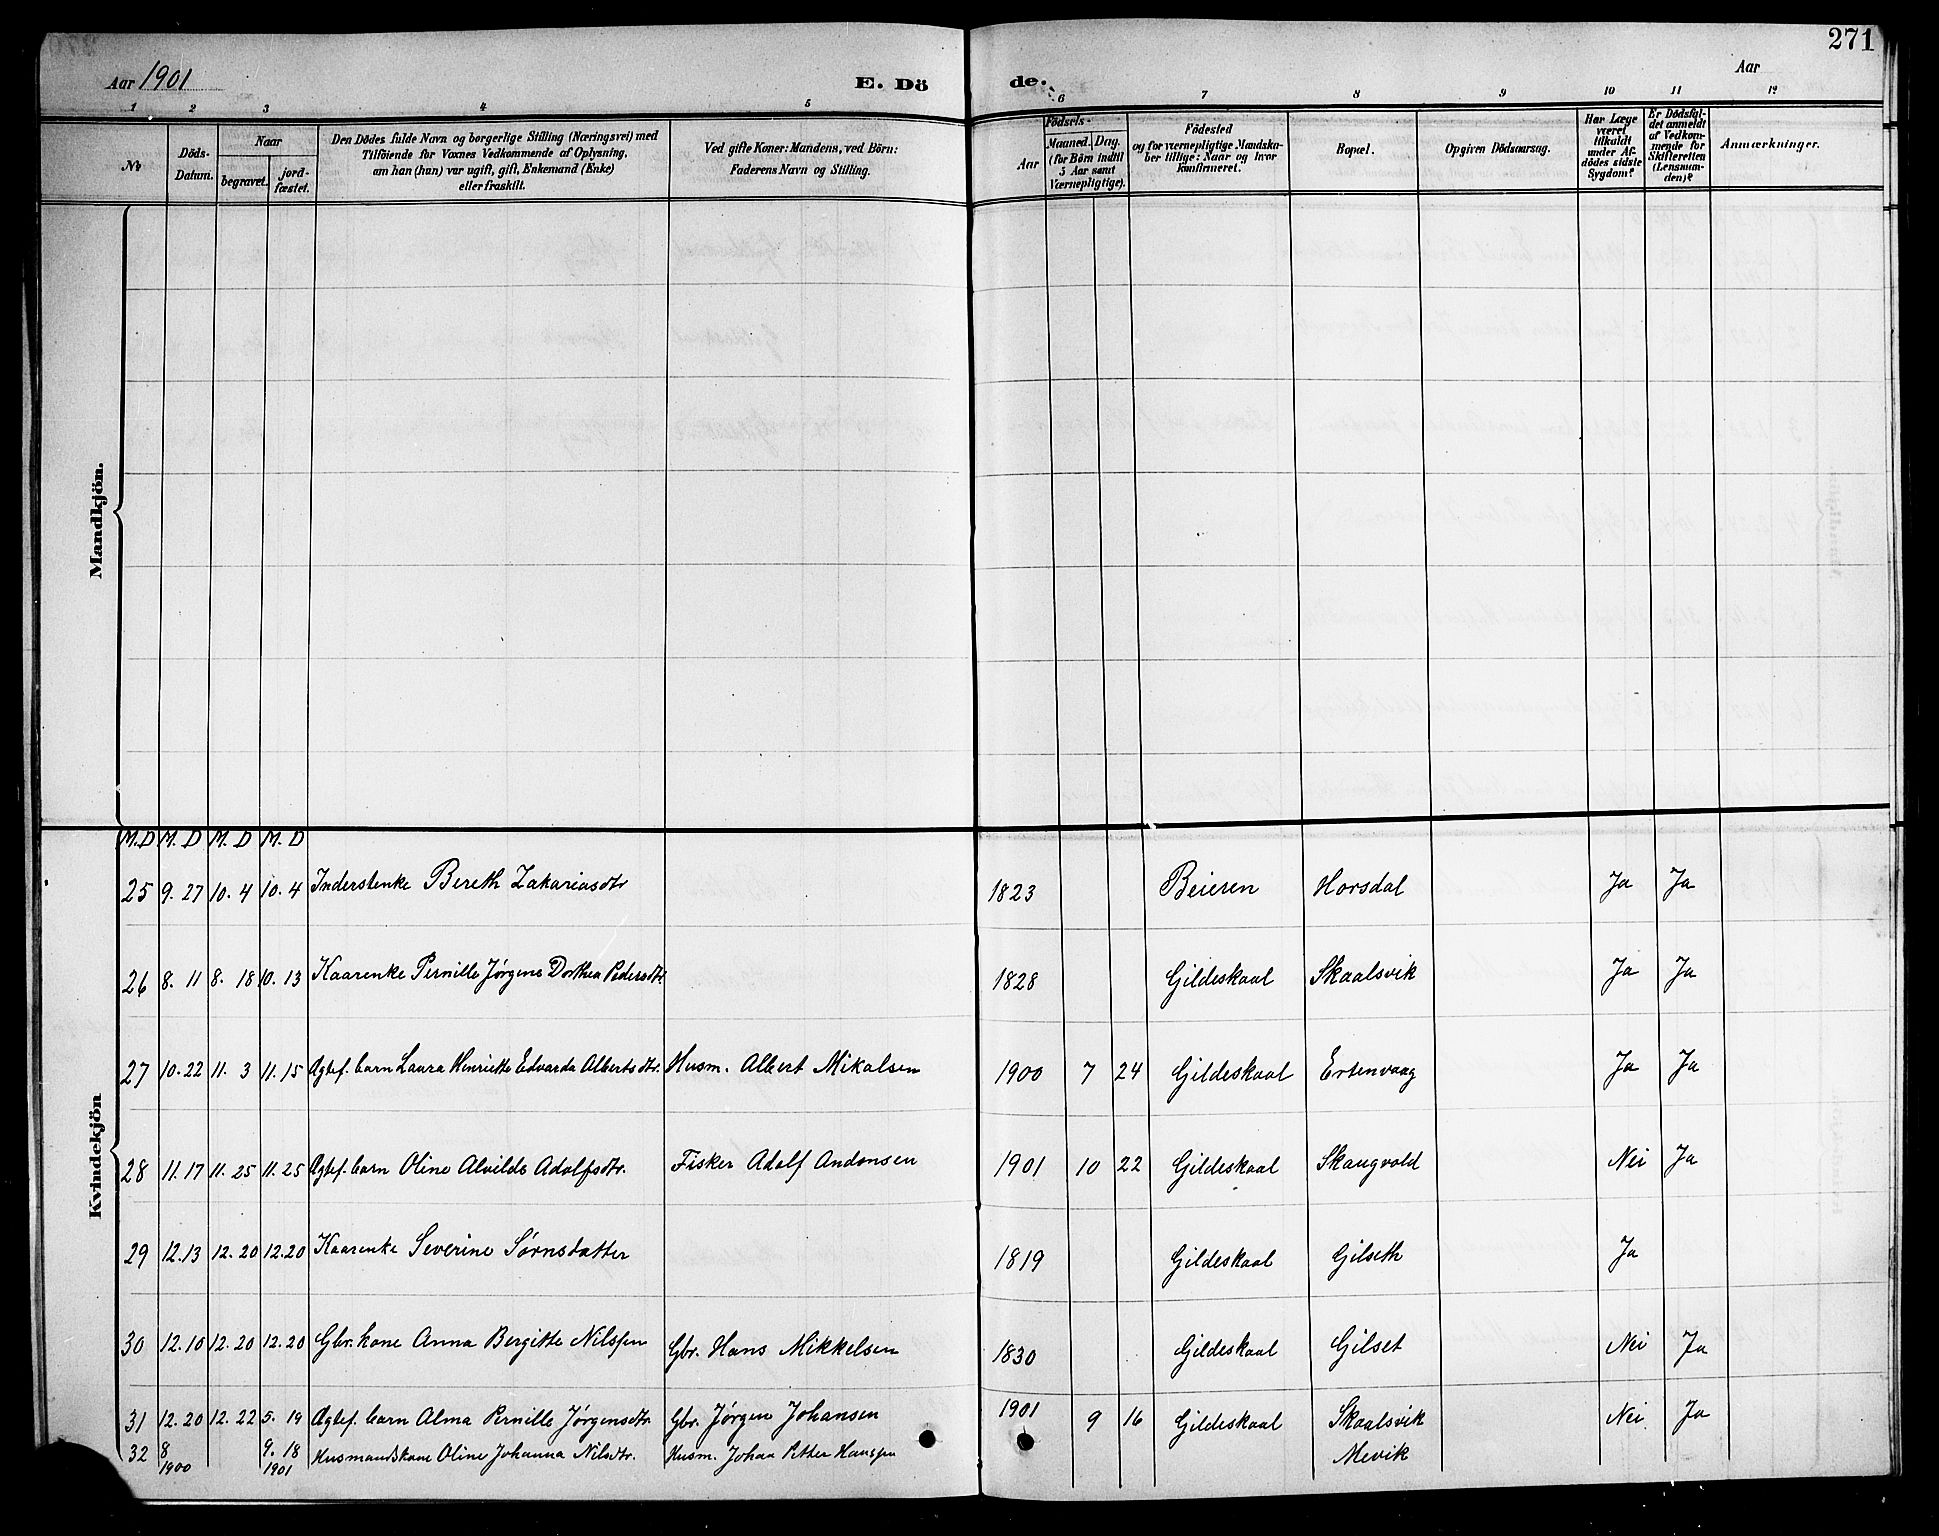 271
Aar 1901 E. Dö de. Aar
1 2 3 4 5 6 7 8 9 10 11 12
No
Döds-Datum.
Naar
begravet. jord-fæstet.
Den Dödes fulde Navn og borgerlige Stilling (Næringsvei) med
Tilföiende for Voxnes Vedkommende af Oplysning,
om han (hun) var ugift, gift, Enkemand (Enke)
eller fraskilt.
Ved gifte Koner: Mandens, ved Börn:
Faderens Navn og Stilling.
Födsels-
Aar Maaned. Dag.
(for Börn indtil
5 Aar samt
Værnepligtige).
Födested
og for værnepligtige Mandska-
ber tillige: Naar og hvor
konfirmeret.
Bopæl.
Opgiven Dödsaarsag.
Har Læge
været
tilkaldt
under Af-
dødes sidste
Sygdom?
Er Dödsfal-
det anmeldt
af Vedkom-
mende for
Skifteretten
(Lensman-
den)?
Anmærkninger.
Mandkjön.
Kvindekjön
M. D M. D M. D M. D
25 9. 27 10. 4 10. 4 Inderstenke Bereth Zakariasdtr 1823 Beieren Horsdal Ja Ja
26 8. 11 8. 18 10. 13 Kaarenke Pernille Jørgine Dorthea Pedersdtr. 1828 Gildeskaal Skaalsvik Ja Ja
27 10. 22 11. 3 11. 15 Ægtef. barn Laura Henriette Edvarda Albertsdtr. Husm. Albert Mikalsen 1900 7 24 Gildeskaal Ertenvaag Ja Ja
28 11. 17 11. 25 11. 25 Ægtef. barn Oline Alvilde Adolfsdtr. Fisker Adolf Andonsen 1901 10 22 Gildeskaal Skaugvold Nei Ja
29 12. 13 12. 20 12. 20 Kaarenke Severine Sørnsdatter 1819 Gildeskaal Gilseth Ja
30 12. 10 12. 20 12. 20 Gbr. kone Anna Bergitte Nilssen Gbr. Hans Mikkelsen 1830 Gildeskaal Gilset Nei Ja
31 12. 20 12. 22 5. 19 Ægtef. barn Alma Pernille Jørgensdtr. Gbr. Jørgen Johansen 1901 9 16 Gildeskaal Skaalsvik Nei Ja
32 8 1900 9. 18 1901 Husmandskone Oline Johanna Nilsdtr. Husm. Johan Petter Hanssen Mevik